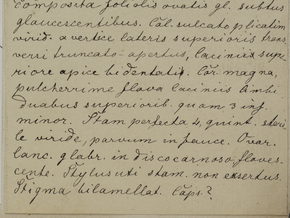 composita foliolis ovatis gl. subtus
glaucescentibus. Cal. sulcato plicatim
virid. a vertice lateris superioris trans
versi truncato-apertus, laciniis supe
riore apice bidentatis. Cor. magna,
pulcherrime flava laciniis limbi
duabus superiorib. quam 3 inf.
minor. Stam perfecta 4, quint. steri
le viride, parvum in fauce. Ovar.
lanc. glabr. in disco carnoso flaves-
cente. Stylus uti stam. non exsertus.
Stigma bilamellat. Caps.?